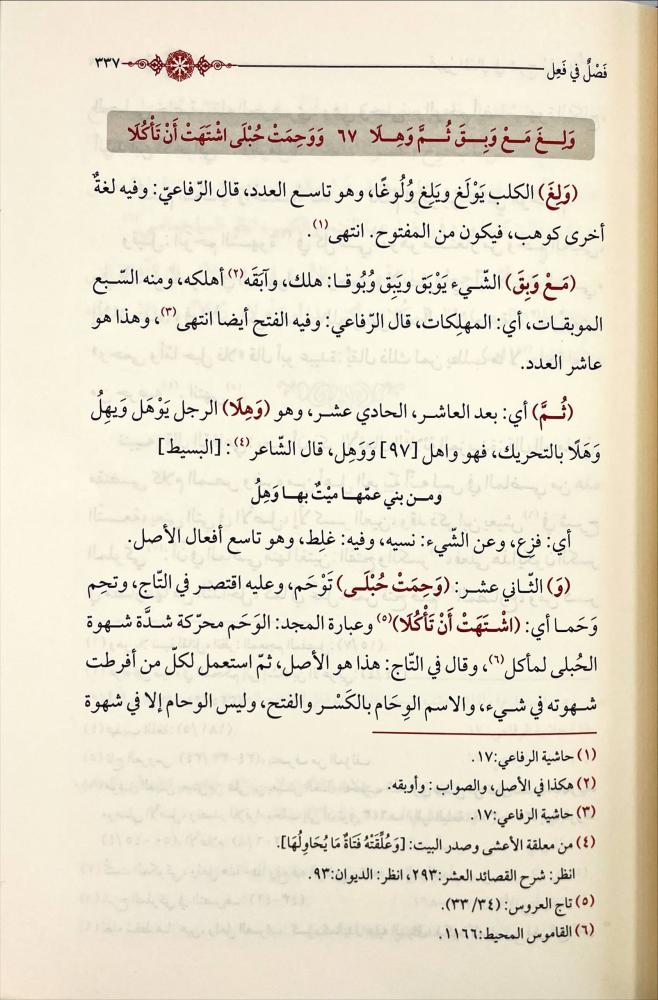 فَصْلٌ في فَعِل ٣٣٧
وَلِـغَ مَـعْ وَبِـقَ ثُـمَّ وَهِـلَا ٦٧ وَوَحِمَتْ حُبْلَى اشْتَهَتْ أَنْ تَأْكُلَا
(وَلِغَ) الكلب يَوْلَغ ويَلِغ وُلُوغًا، وهو تاسع العدد، قال الرّفاعيّ: وفيه لغةٌ
أخرى كوهب، فيكون من المفتوح. انتهى(١).
(مَـعْ وَبِقَ) الشّيء يَوْبَق ويَبِق وُبُوقـا: هلك، وآبَقَه(٢) أهلكه، ومنه السّبع
الموبقـات، أي: المهلِكات، قال الرّفاعي: وفيه الفتح أيضا انتهى(٣)، وهذا هو
عاشر العدد.
(ثُـمَّ) أي: بعد العاشـر، الحادي عشـر، وهو (وَهِلَا) الرجل يَوْهَل ويَهِلُ
وَهَلًا بالتحريك، فهو واهل [٩٧] وَوَهِل، قال الشّاعر(٤): [البسيط]
ومـن بني عمّهـا ميْتٌ بهـا وَهِلُ
أي: فزِع، وعن الشّيء: نسيه، وفيه: غلِط، وهو تاسع أفعال الأصل.
(وَ) الثّـاني عشـر: (وَحِمَتْ حُبْلَـى) تَوْحَم، وعليه اقتصـر في التّاج، وتحِم
وَحَمـا أي: (اشْـتَهَتْ أَنْ تَأْكُلَا)(٥) وعبارة المجد: الوَحَم محرّكة شدَّة شهوة
الحُبلى لمأكل(٦)، وقال في التّاج: هذا هو الأصل، ثمّ استعمل لكلّ من أفرطت
شـهوته في شـيء، والاسم الوِحَام بالكَسْر والفتح، وليس الوحام إلا في شهوة
(١) حاشية الرفاعي:١٧.
(٢) هكذا في الأصل، والصواب : وأوبقه.
(٣) حاشية الرفاعي:١٧.
(٤) من معلقة الأعشى وصدر البيت: [وَعُلِّقَتْهُ فَتَاةٌ مَا يُحَاوِلُهَا].
انظر: شرح القصائد العشر:٢٩٣، انظر: الديوان:٩٣.
(٥) تاج العروس: (٣٤/ ٣٣).
(٦) القاموس المحيط:١١٦٦.